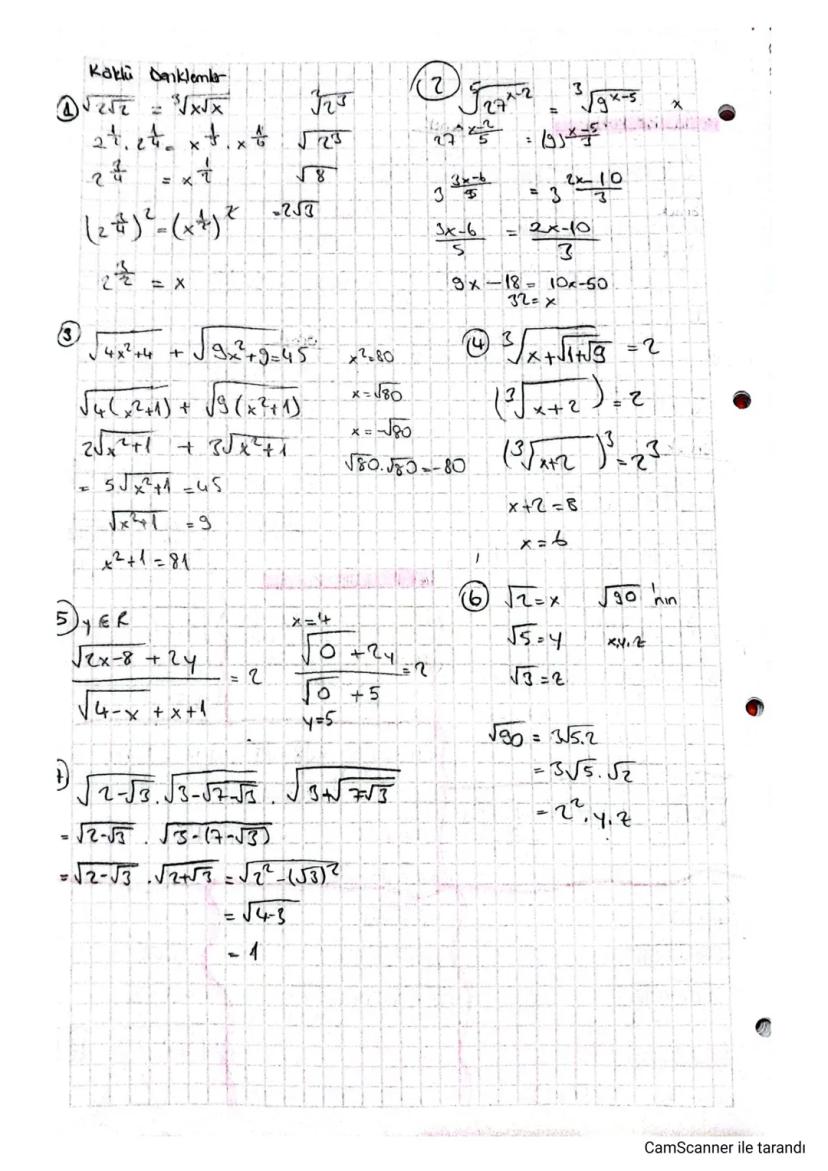 Köklü Denklemler
① √(2√2) = ³√(x√x)
2^(1/2) . 2^(1/4) = x^(1/3) . x^(1/6)
2^(3/4) = x^(1/2)
(2^(3/4))^2 = (x^(1/2))^2
2^(3/2) = x
²√(2^3)
√(2^3)
√8
=2√3
② ⁵√(27^(x-2)) = ³√(9^(x-5)) x
27^((x-2)/5) = (9)^((x-5)/3)
3^((3x-6)/5) = 3^((2x-10)/3)
(3x-6)/5 = (2x-10)/3
9x-18 = 10x-50
32=x
③ √(4x²+4) + √(9x²+9) = 45
√(4(x²+1)) + √(9(x²+1))
2√(x²+1) + 3√(x²+1)
= 5√(x²+1) = 45
√(x²+1) = 9
x²+1 = 81
x²=80
x=√80
x=-√80
√80.√80=-80
④ ³√(x+√(1+√9)) = 2
(³√(x+2)) = 2
(³√(x+2))³ = 2³
x+2=8
x=6
5 y∈R
(√(2x-8) + 2y) / (√(4-x) + x+1) = 2
x=4
(√0 + 2y) / (√0 + 5) = 2
y=5
⑥ √2=x √90 'nın
√5=y x,y,z
√3=z
√90 = 3√5.2
= 3√5.√2
= z².y.z
7 √(2-√3) . √(3-√(7-√3)) . √(3+√(7√3))
= √(2-√3) . √(3-(7-√3))
= √(2-√3) . √(2+√3) = √(2²-(√3)²)
= √(4-3)
= 1
CamScanner ile tarandı